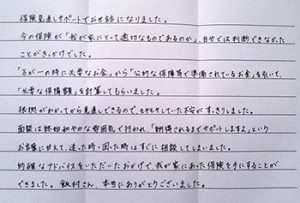 保険見直しサポートでお世話になりました。
今の保険が「我が家にとって適切なものであるのか」、自分では判断できなかった
ことがきっかけでした。
「万が一の時に必要なお金」から「公的な保障等で準備されているお金」を引いて、
「必要な保障額」を計算してもらいました。
根拠がわかってから見直しできるので、もやもやしていた不安がすっきりしました。
面談は終始和やかな雰囲気で行われ、「納得されるまでサポートしますよ」という
お言葉に甘えて、迷った時・困った時はすぐに相談してしまいました。
的確なアドバイスをいただいたおかげで、我が家にあった保険を手にすることが
できました。飯村さん、本当にありがとうございました。